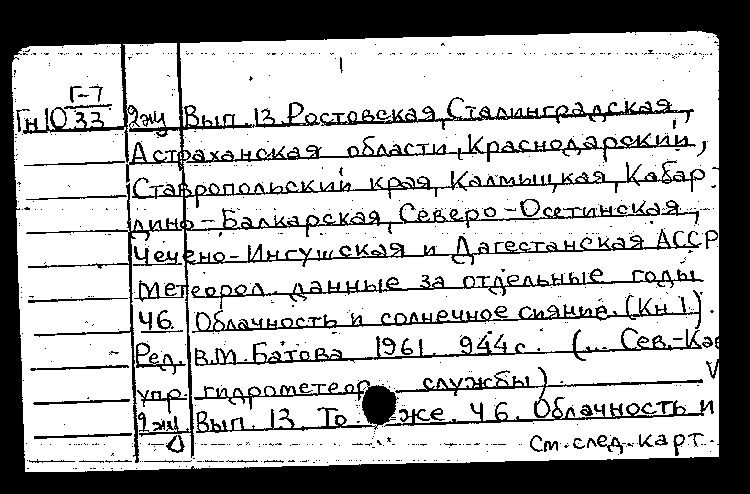 Г-7
Гн10 33 2эж Вып. 13. Ростовская, Сталинградская,
Астраханская области, Краснодарский,
Ставропольский края, Калмыцкая, Кабар-
дино-Балкарская, Северо-Осетинская,
Чечено-Ингушская и Дагестанская АССР
Метеорол. данные за отдельные годы
Ч6. Облачность и солнечное сияние. (Кн 1.)
Ред. В.М. Батова. 1961. 944 с. (... Сев.-Кав
упр. гидрометеор. службы)
2эж Вып. 13. То же. Ч6. Облачность и
См. след. карт.